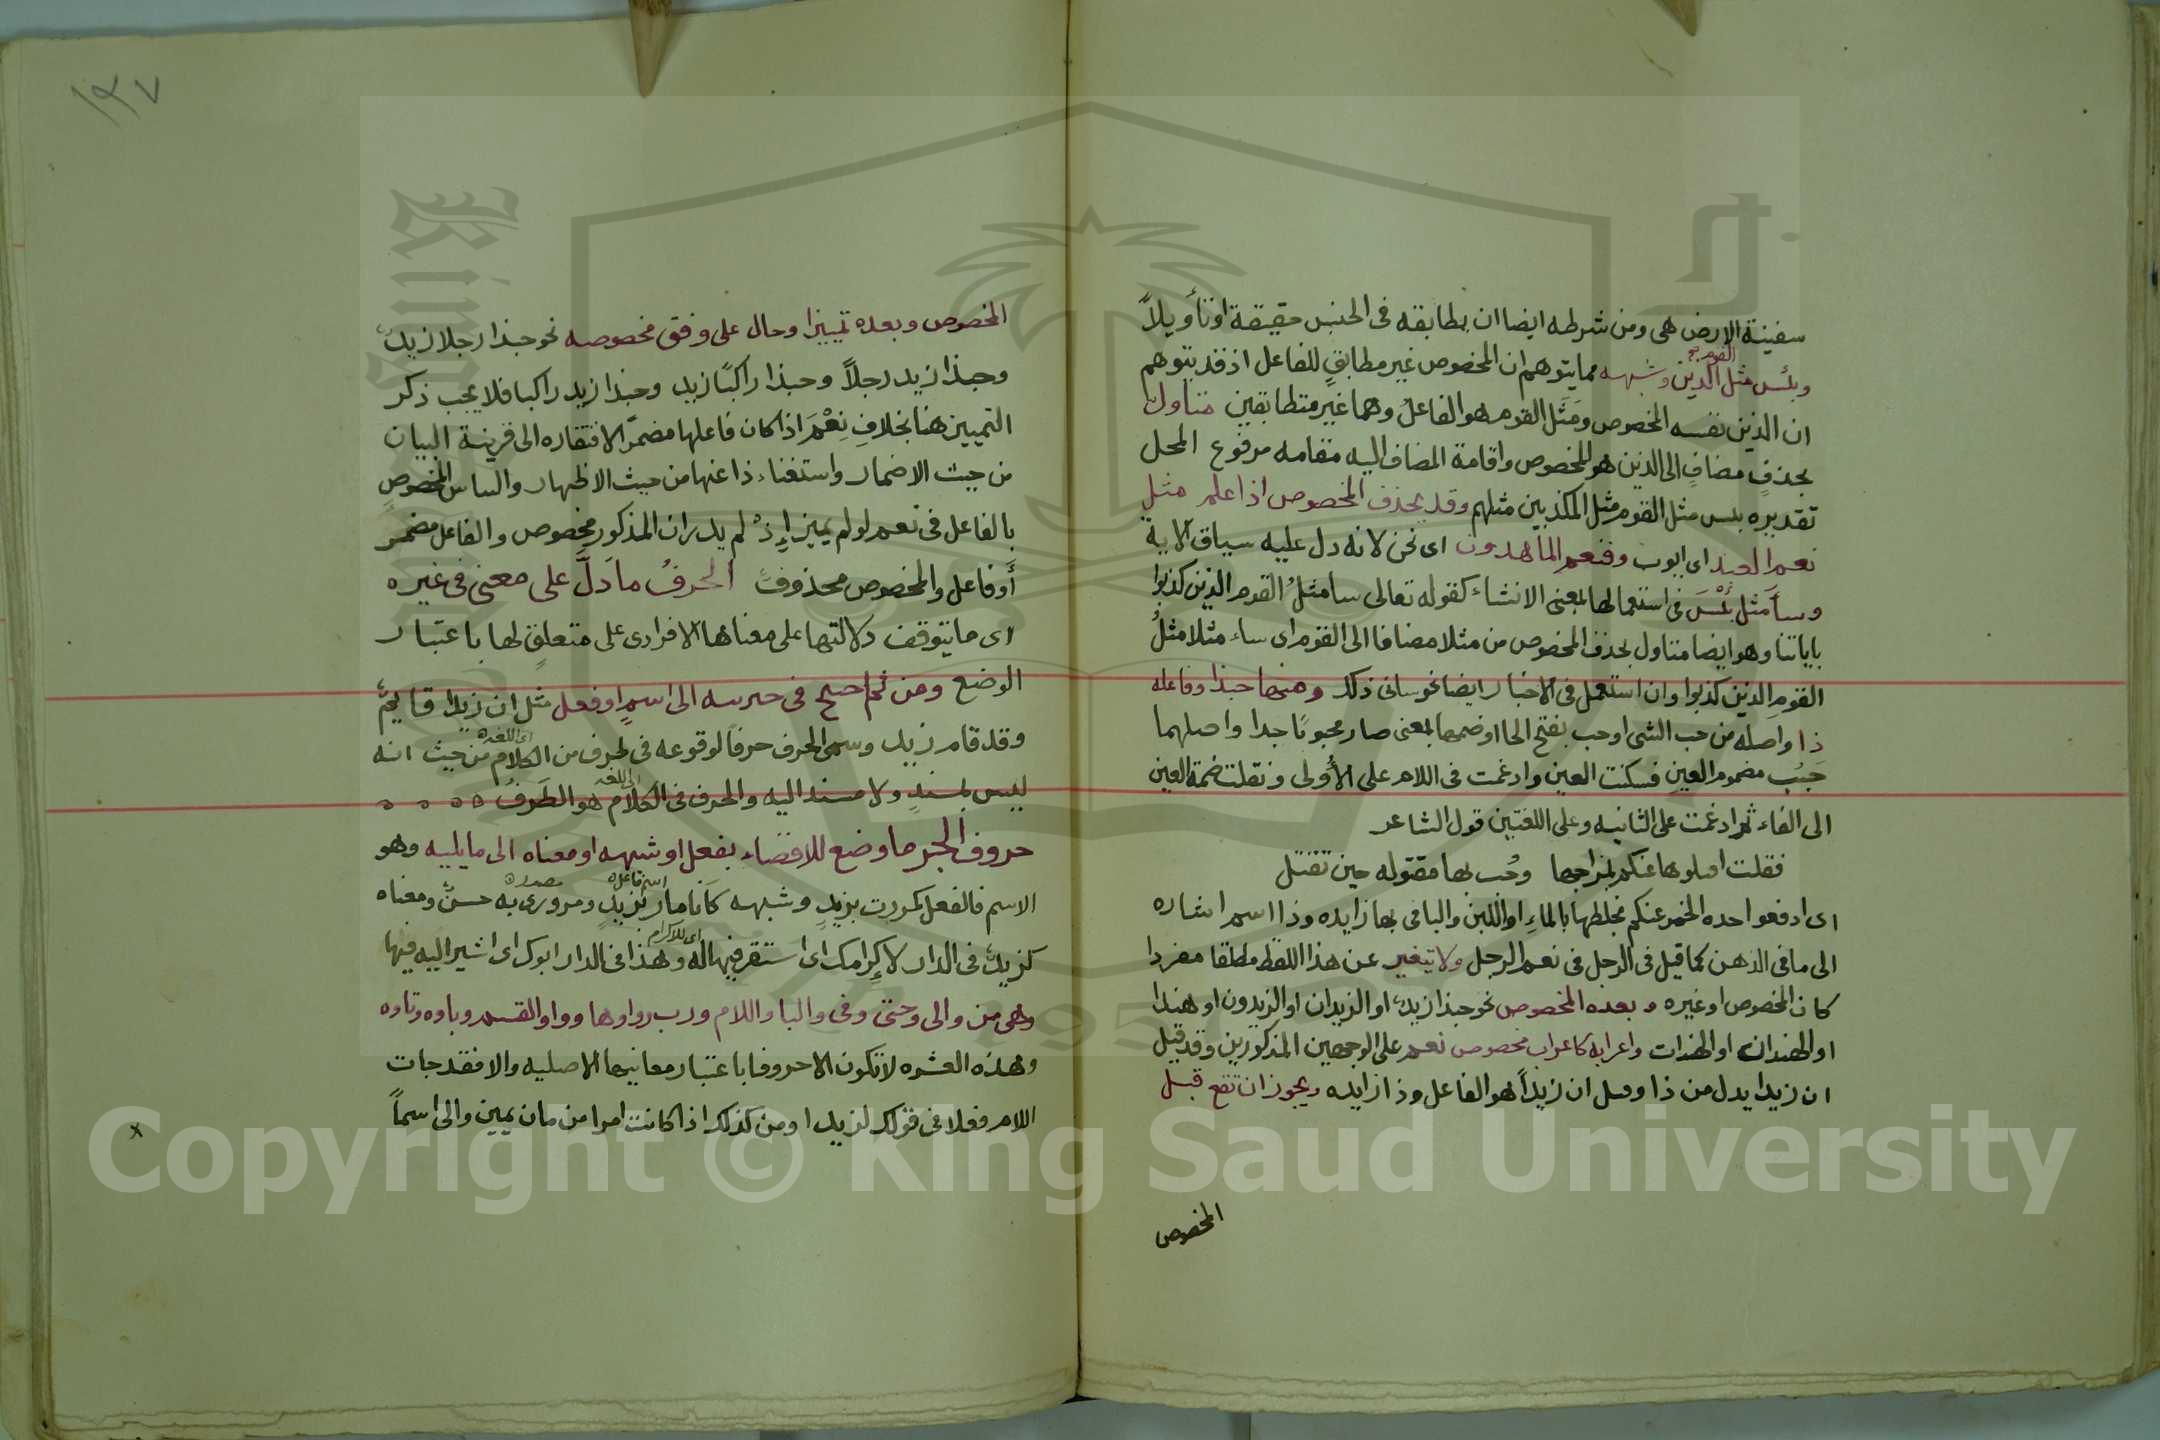 سفينة الارض هى ومن شرطه ايضا ان يطابقه فى الجنس حقيقة او تأويلاً
وبئس مثل القوم الذين وشبهه مما يتوهم ان المخصوص غير مطابقٍ للفاعل اذ قد يتوهم
ان الذين نفسه المخصوص ومَثَل القوم هو الفاعل وهما غير متطابقين متاول
بحذفِ مضافٍ الى الذين هو المخصوص واقامة المضاف اليه مقامه مرفوع المحل
تقديره بئس مثل القوم مثل المكذبين مثلهم وقد يحذف المخصوص اذا علم مثل
نعم العبد اى ايوب وفنعم الماهدون اى نحن لانه دل عليه سياق الاية
وساَ مثل بئْسَ فى استعمالها بمعنى الانشاء كقوله تعالى سا مثلُ القوم الذين كذبوا
باياتنا وهو ايضا متاول بحذف المخصوص من مثلا مضافا الى القوم اى ساء مثلا مثلُ
القومِ الذين كذبوا وان استعمل فى الاخبار ايضا نحو سانى ذلك ومنها حبذا وفاعله
ذا واصله من حب الشى او حب بفتح الحا او ضمها بمعنى صار محبوبًا جدا واصلهما
حَبُب مضموم العين فسكنت العين وادغمت فى اللام على الأولى ونقلت ضمة العين
الى الفاء ثم ادغمت على الثانيه وعلى اللغتين قول الشاعر
فقلت اقتلوها عنكم بمزاجها وحُب بها مقتوله حين تقتل
اى ادفعوا حده الخمر عنكم بخلطها بالماءِ او اللبن والبا فى بها زايده وذا اسم اشاره
الى ما فى الذهن كما قيل فى الرجل فى نعم الرجل ولا يتغير عن هذا اللفظ مطلقا مفردا
كان المخصوص او غيره وبعده المخصوص نحو حبذا زيدٌ او الزيدان او الزيدون او هندا
او الهندان او الهندات واعرابه كاعراب مخصوص نعم على الوجهين المذكورين وقد قيل
ان زيدا بدل من ذا وقيل ان زيداً هو الفاعل وذا زايده ويجوز ان تقع قبل
المخصوص
١٣٧
المخصوص وبعده تمييزا وحال على وفق مخصوصه نحو حبذا رجلا زيدٌ
وحبذا زيد رجلاً وحبذا راكبًا زيد وحبذا زيد راكبا فلا يجب ذكر
التمييز هنا بخلافِ نِعْمَ اذا كان فاعلها مضمرًا لافتقاره الى قرينة البيان
من حيث الاضمار واستغناء ذا عنها من حيث الاظهار والباس المخصوصِ
بالفاعل فى نعم لو لم يميز إذْ لم يدر ان المذكور مخصوص والفاعل مضمر
أو فاعل والمخصوص محذوفٌ الحرفُ ما دَلَّ على معنى فى غيره
اى ما يتوقف دلالتها على معناها الافرادى على متعلقٍ لها باعتبار
الوضع ومن ثم احتاج فى جزئيته الى اسمٍ او فعل مثل ان زيدا قايمٌ
وقد قام زيد وسمى الحرف حرفًا لوقوعه فى طرف من الكلام من حيث انه
اى اللغه
ليس بمسندٍ ولا مسندا اليه والحرف فى الكلام هو الطرفُ
اى اللغه
حروف الجر ما وضع للافضاء بفعل او شبهه او معناه الى ما يليه وهو
الاسم فالفعل كمررت بزيدٍ وشبهه كأنا مار بزيدٍ ومرورى به حسنٌ ومعناه
اسم فاعل مصدر
كزيدٌ فى الدار لاكرامك اى استقر فيها له وهذا فى الدار ابوك اى اشير اليه فيها
اى للاكرام
وهى من والى وحتى وفى والبا واللام ورب وواوها وواو القسم وباوه وتاوه
وهذه العشره لا تكون الا حروفا باعتبار معانيها الاصليه والا فقد جات
اللام فعلا فى قولك لزيدا ومن كذلك اذا كانت امرا من مان يمين والى اسماً